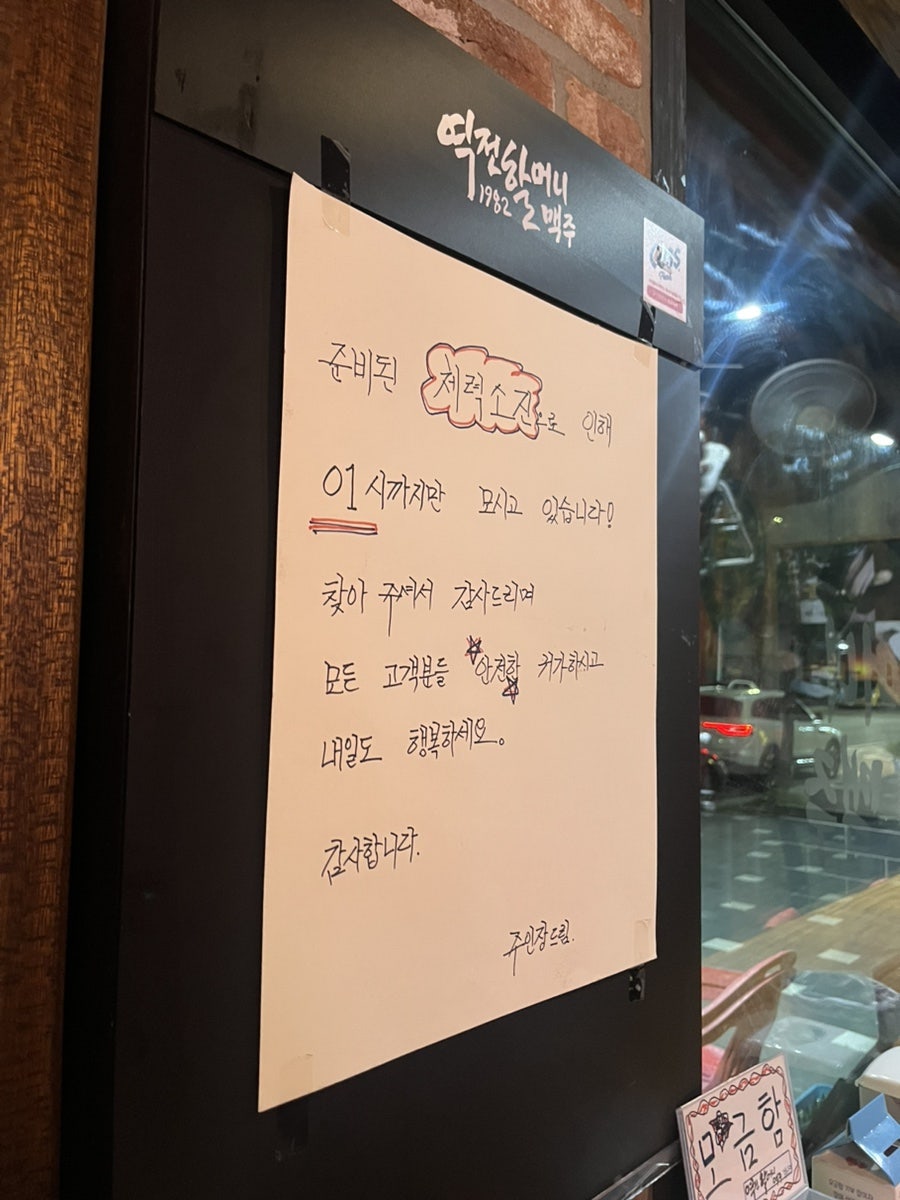 역전할머니
1982 맥주
준비된 체력소진으로 인해
01시까지만 모시고 있습니다!
찾아 주셔서 감사드리며
모든 고객분들 안전한 귀가하시고
내일도 행복하세요.
감사합니다.
주인장드림.
모금함